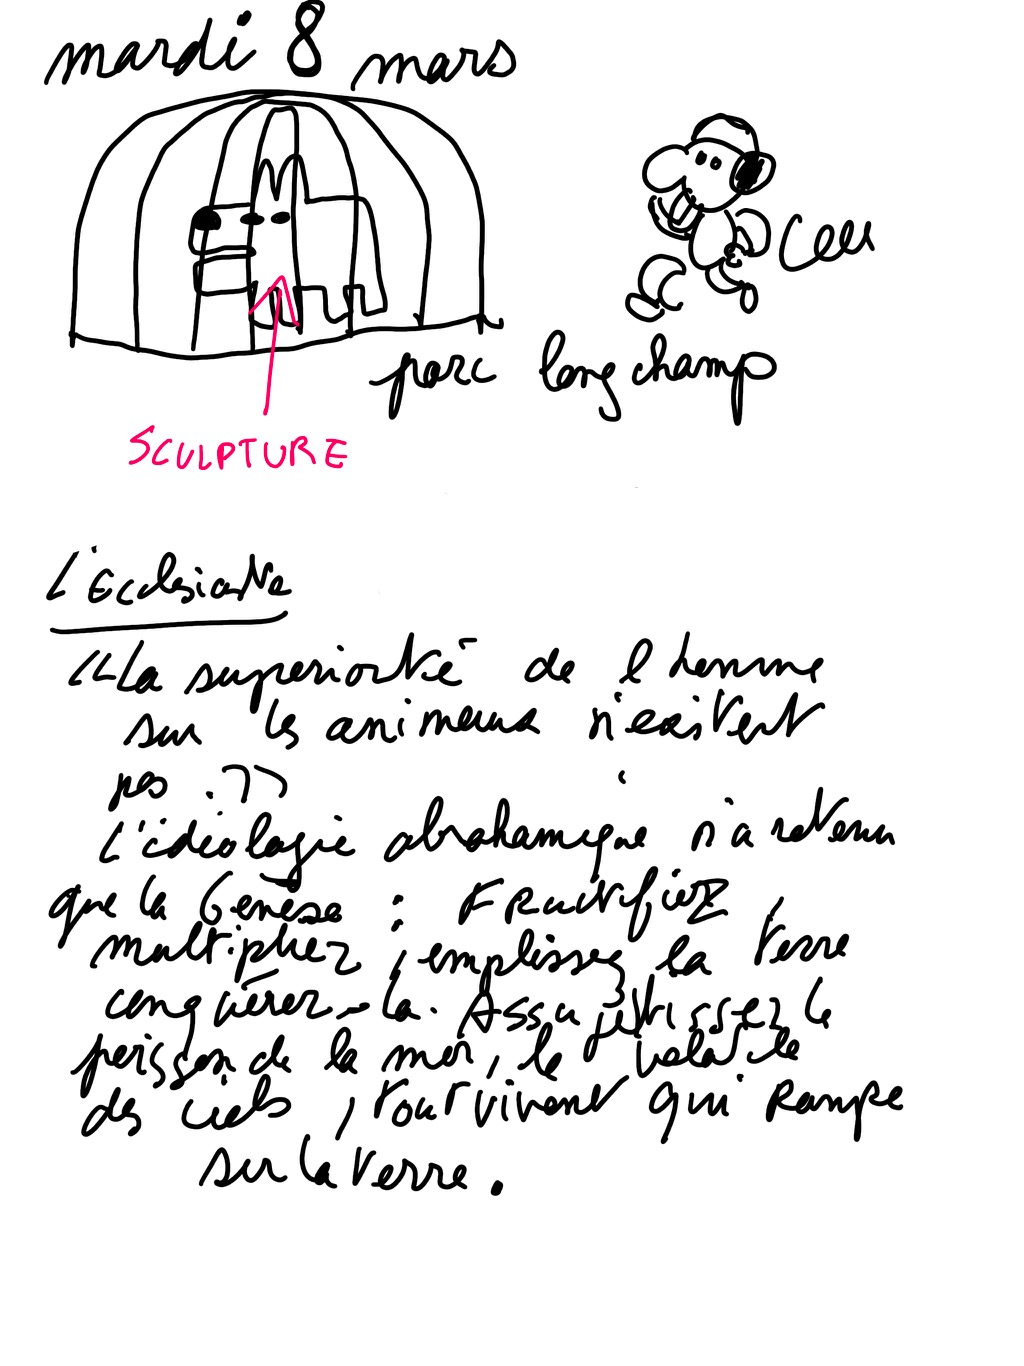 mardi 8 mars
parc longchamp
SCULPTURE
L'Ecclesiaste
"La superiorité de l homme
sur les animaux n'existent
pas."
L'idéologie abrahamique n'a retenu
que la Genèse : FRuctifiez,
multipliez, emplissez la terre
conquérez-la. Assujettissez le
poisson de la mer, le volatile
des ciels, tout vivant qui Rampe
sur la terre.